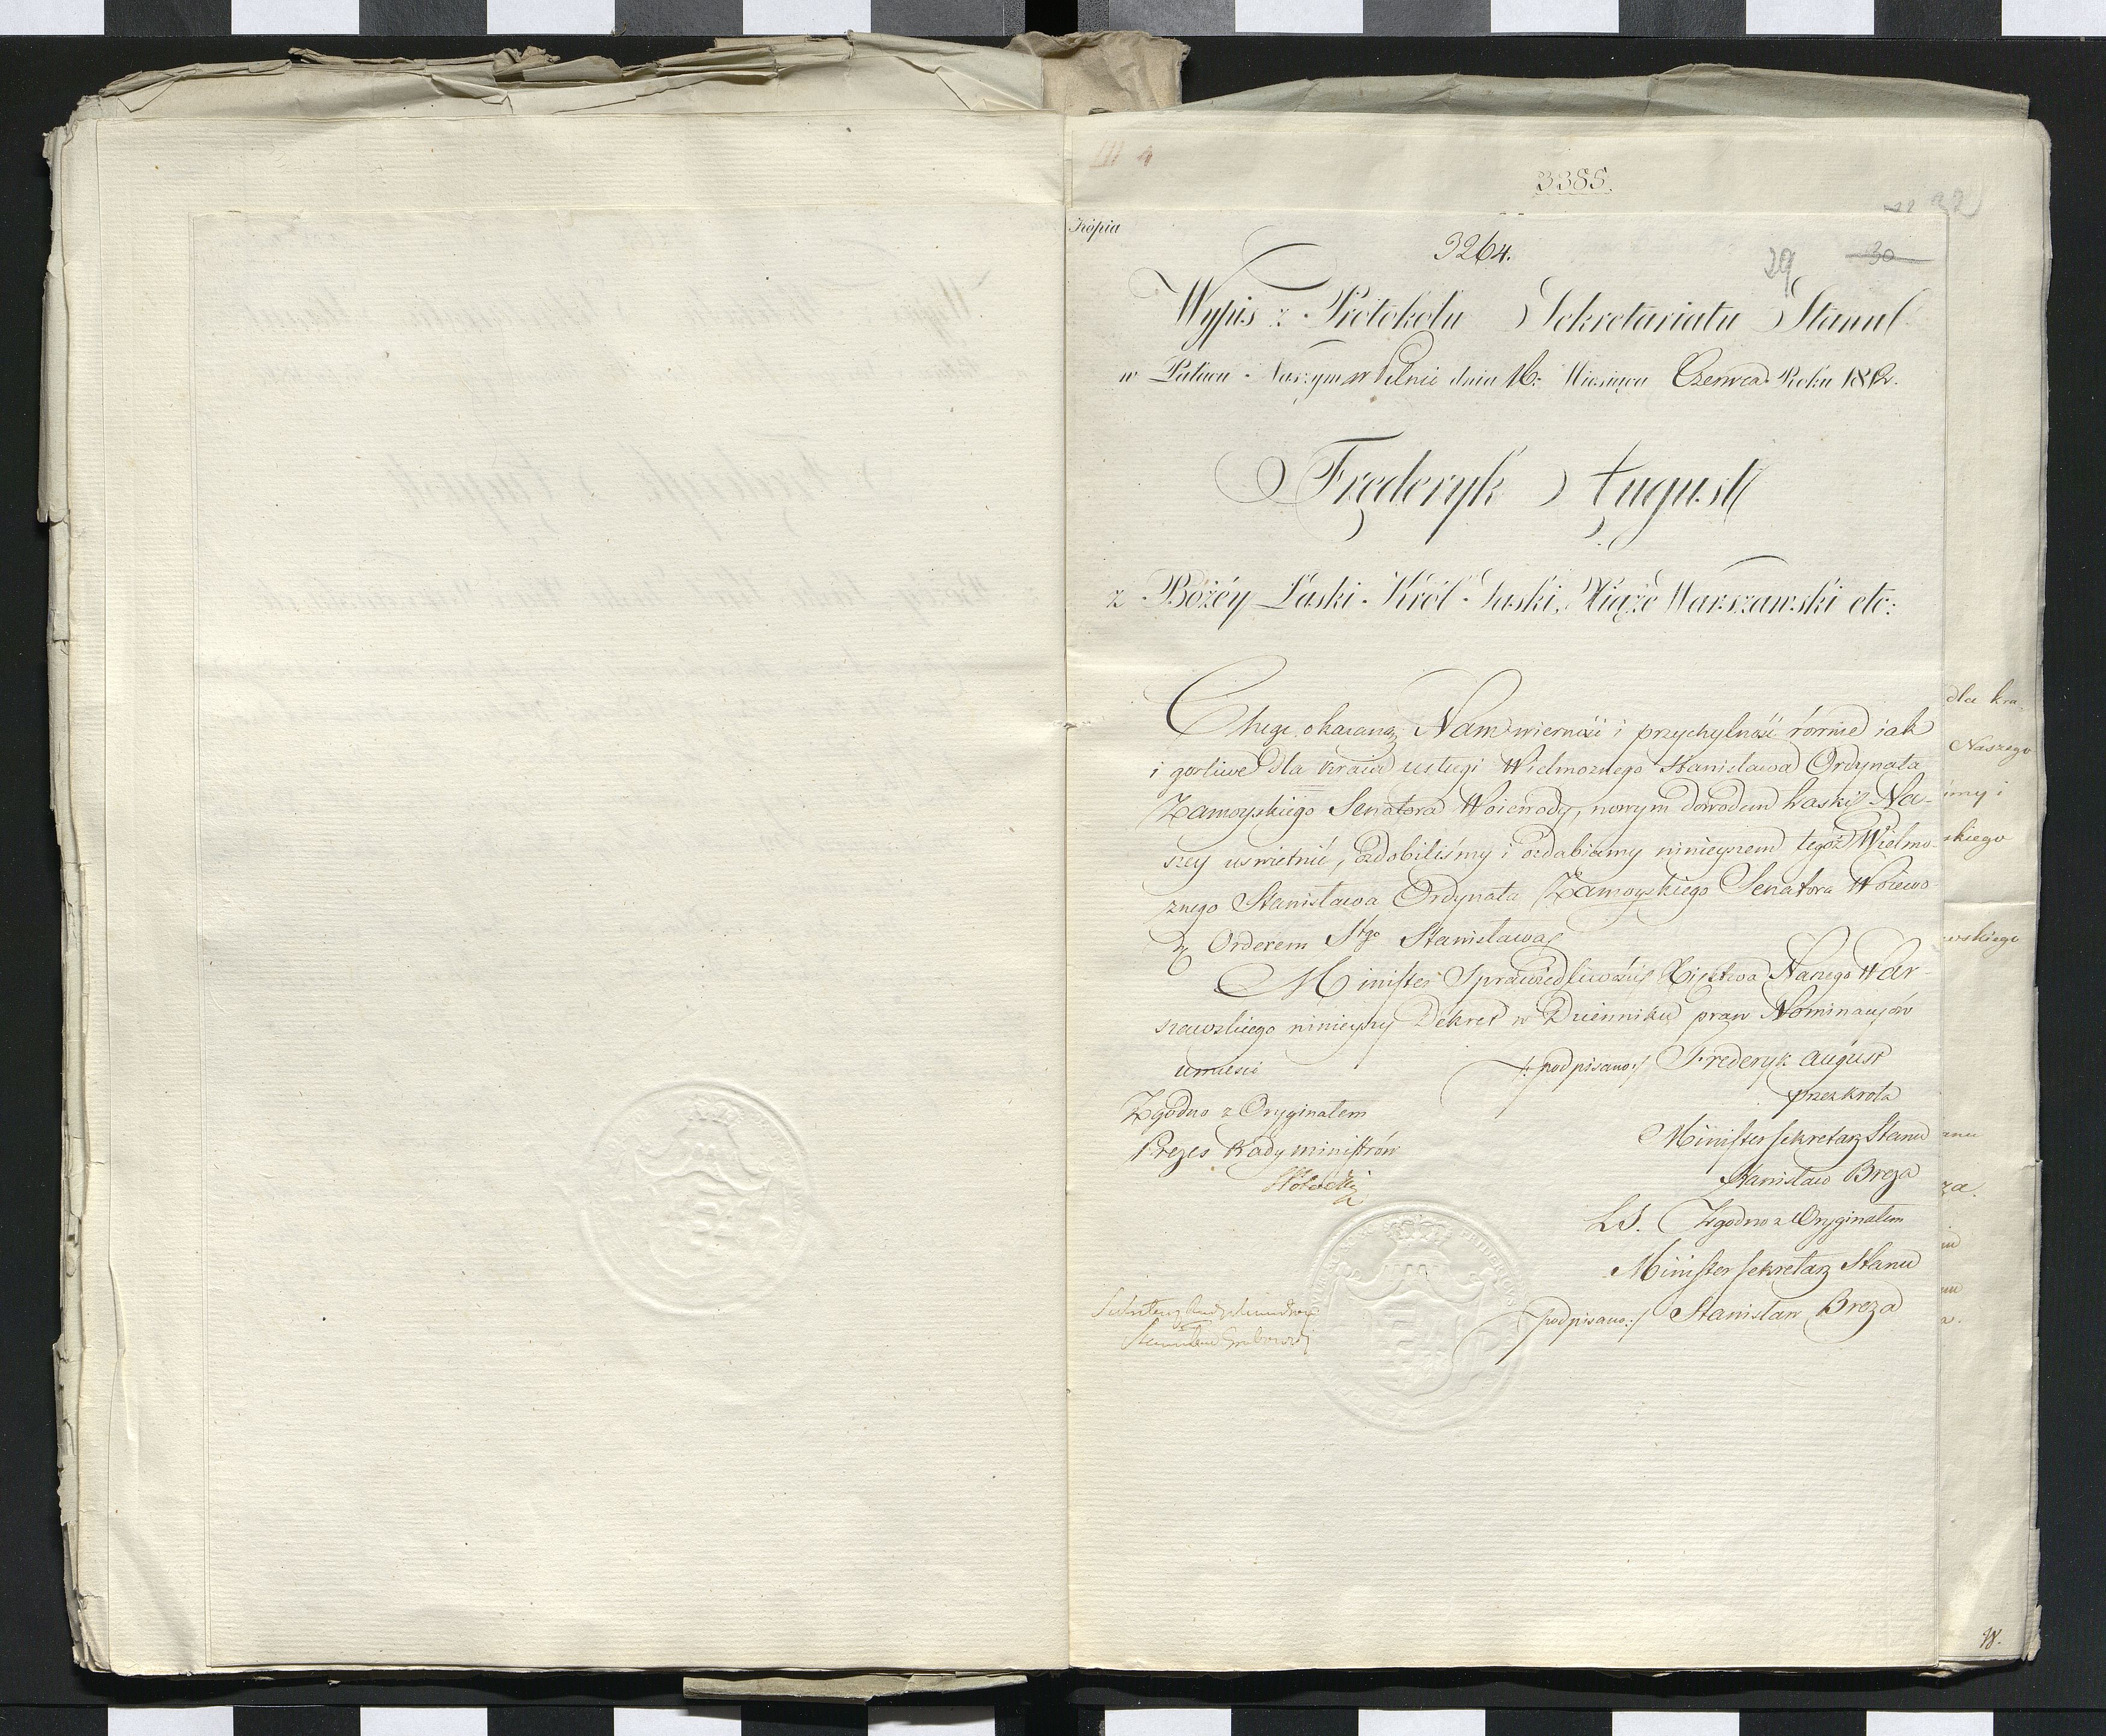 III 4
3385.
32
Kopia
3264.
29 30
Wypis z Protokołu Sekretariatu Stanu
w Pałacu Naszym w Pilnic dnia 16. Miesiąca Czerwca Roku 1812.
Fryderyk August
z Bożéy Łaski Król Saski, Xiąże Warszawski etc:
Chcąc okazaną Nam wierność i przychylność równie iak
i gorliwe dla Kraiu usługi Wielmoznego Stanisława Ordynata
Zamoyskiego Senatora Woiewody, nowym dowodem Łaski Na-
szey uświetnić, ozdobiliśmy i ozdabiamy ninieyszem tegoż Wielmo-
znego Stanisława Ordynata Zamoyskiego Senatora Woiewo-
dę Orderem Stgo Stanisława
Minister Sprawiedliwości Xięstwa Naszego War-
szawskiego ninieyszy Dekret w Dzienniku praw Nominacyów
umieści /: podpisano:/ Frederyk August
przez króla
Zgodno z Oryginałem
Minister Sekretarz Stanu
Prezes Rady Ministrów
Stanisław Breza
L.S. Zgodno z Oryginałem
Minister Sekretarz Stanu
podpisano:/ Stanisław Breza
Sekretarz Rady Ministrów
dla kra-
Naszego
imy i
skiego
wskiego
anu
za.